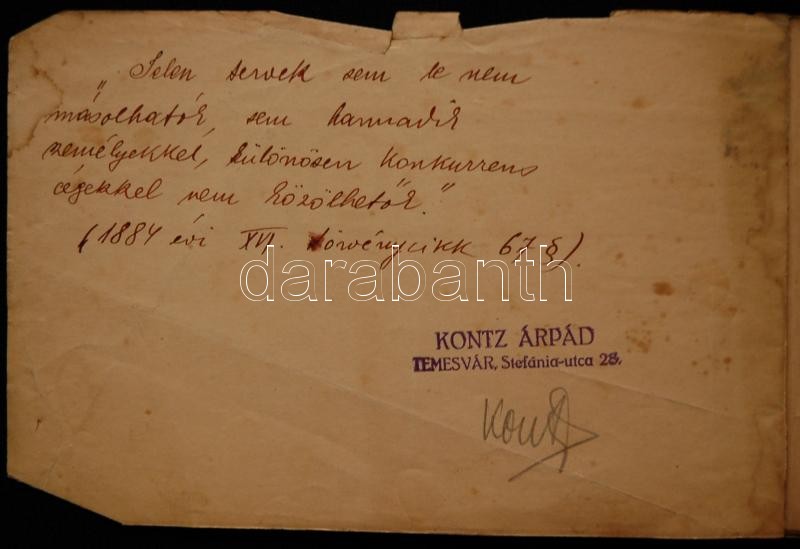 „Jelen tervek sem le nem
másolhatók, sem harmadik
személyekkel, különösen konkurrens
cégekkel nem közölhetők."
(1884 évi XVI. törvénycikk 67 §).
darabanth
KONTZ ÁRPÁD
TEMESVÁR, Stefánia-utca 28.
Kontz